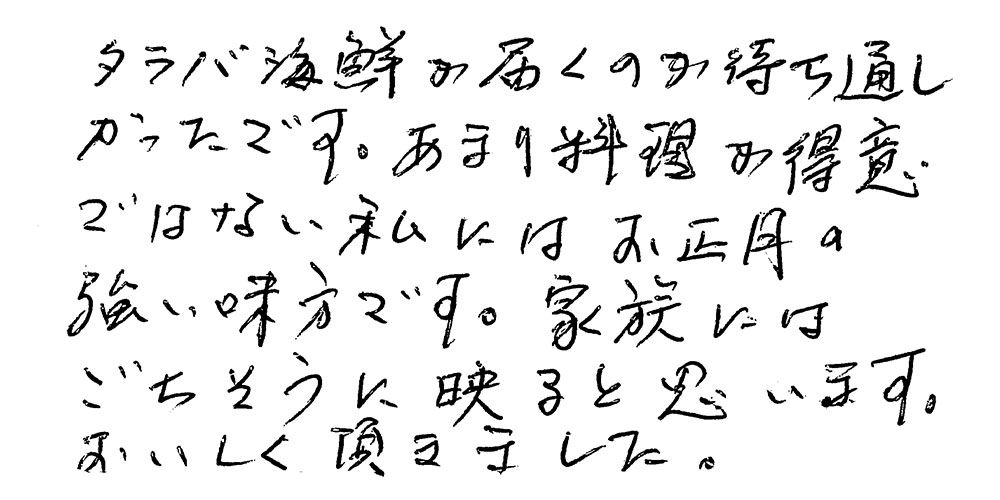 タラバ海鮮が届くのが待ち通し
かったです。あまり料理が得意
ではない私にはお正月の
強い味方です。家族には
ごちそうに映ると思います。
おいしく頂きました。